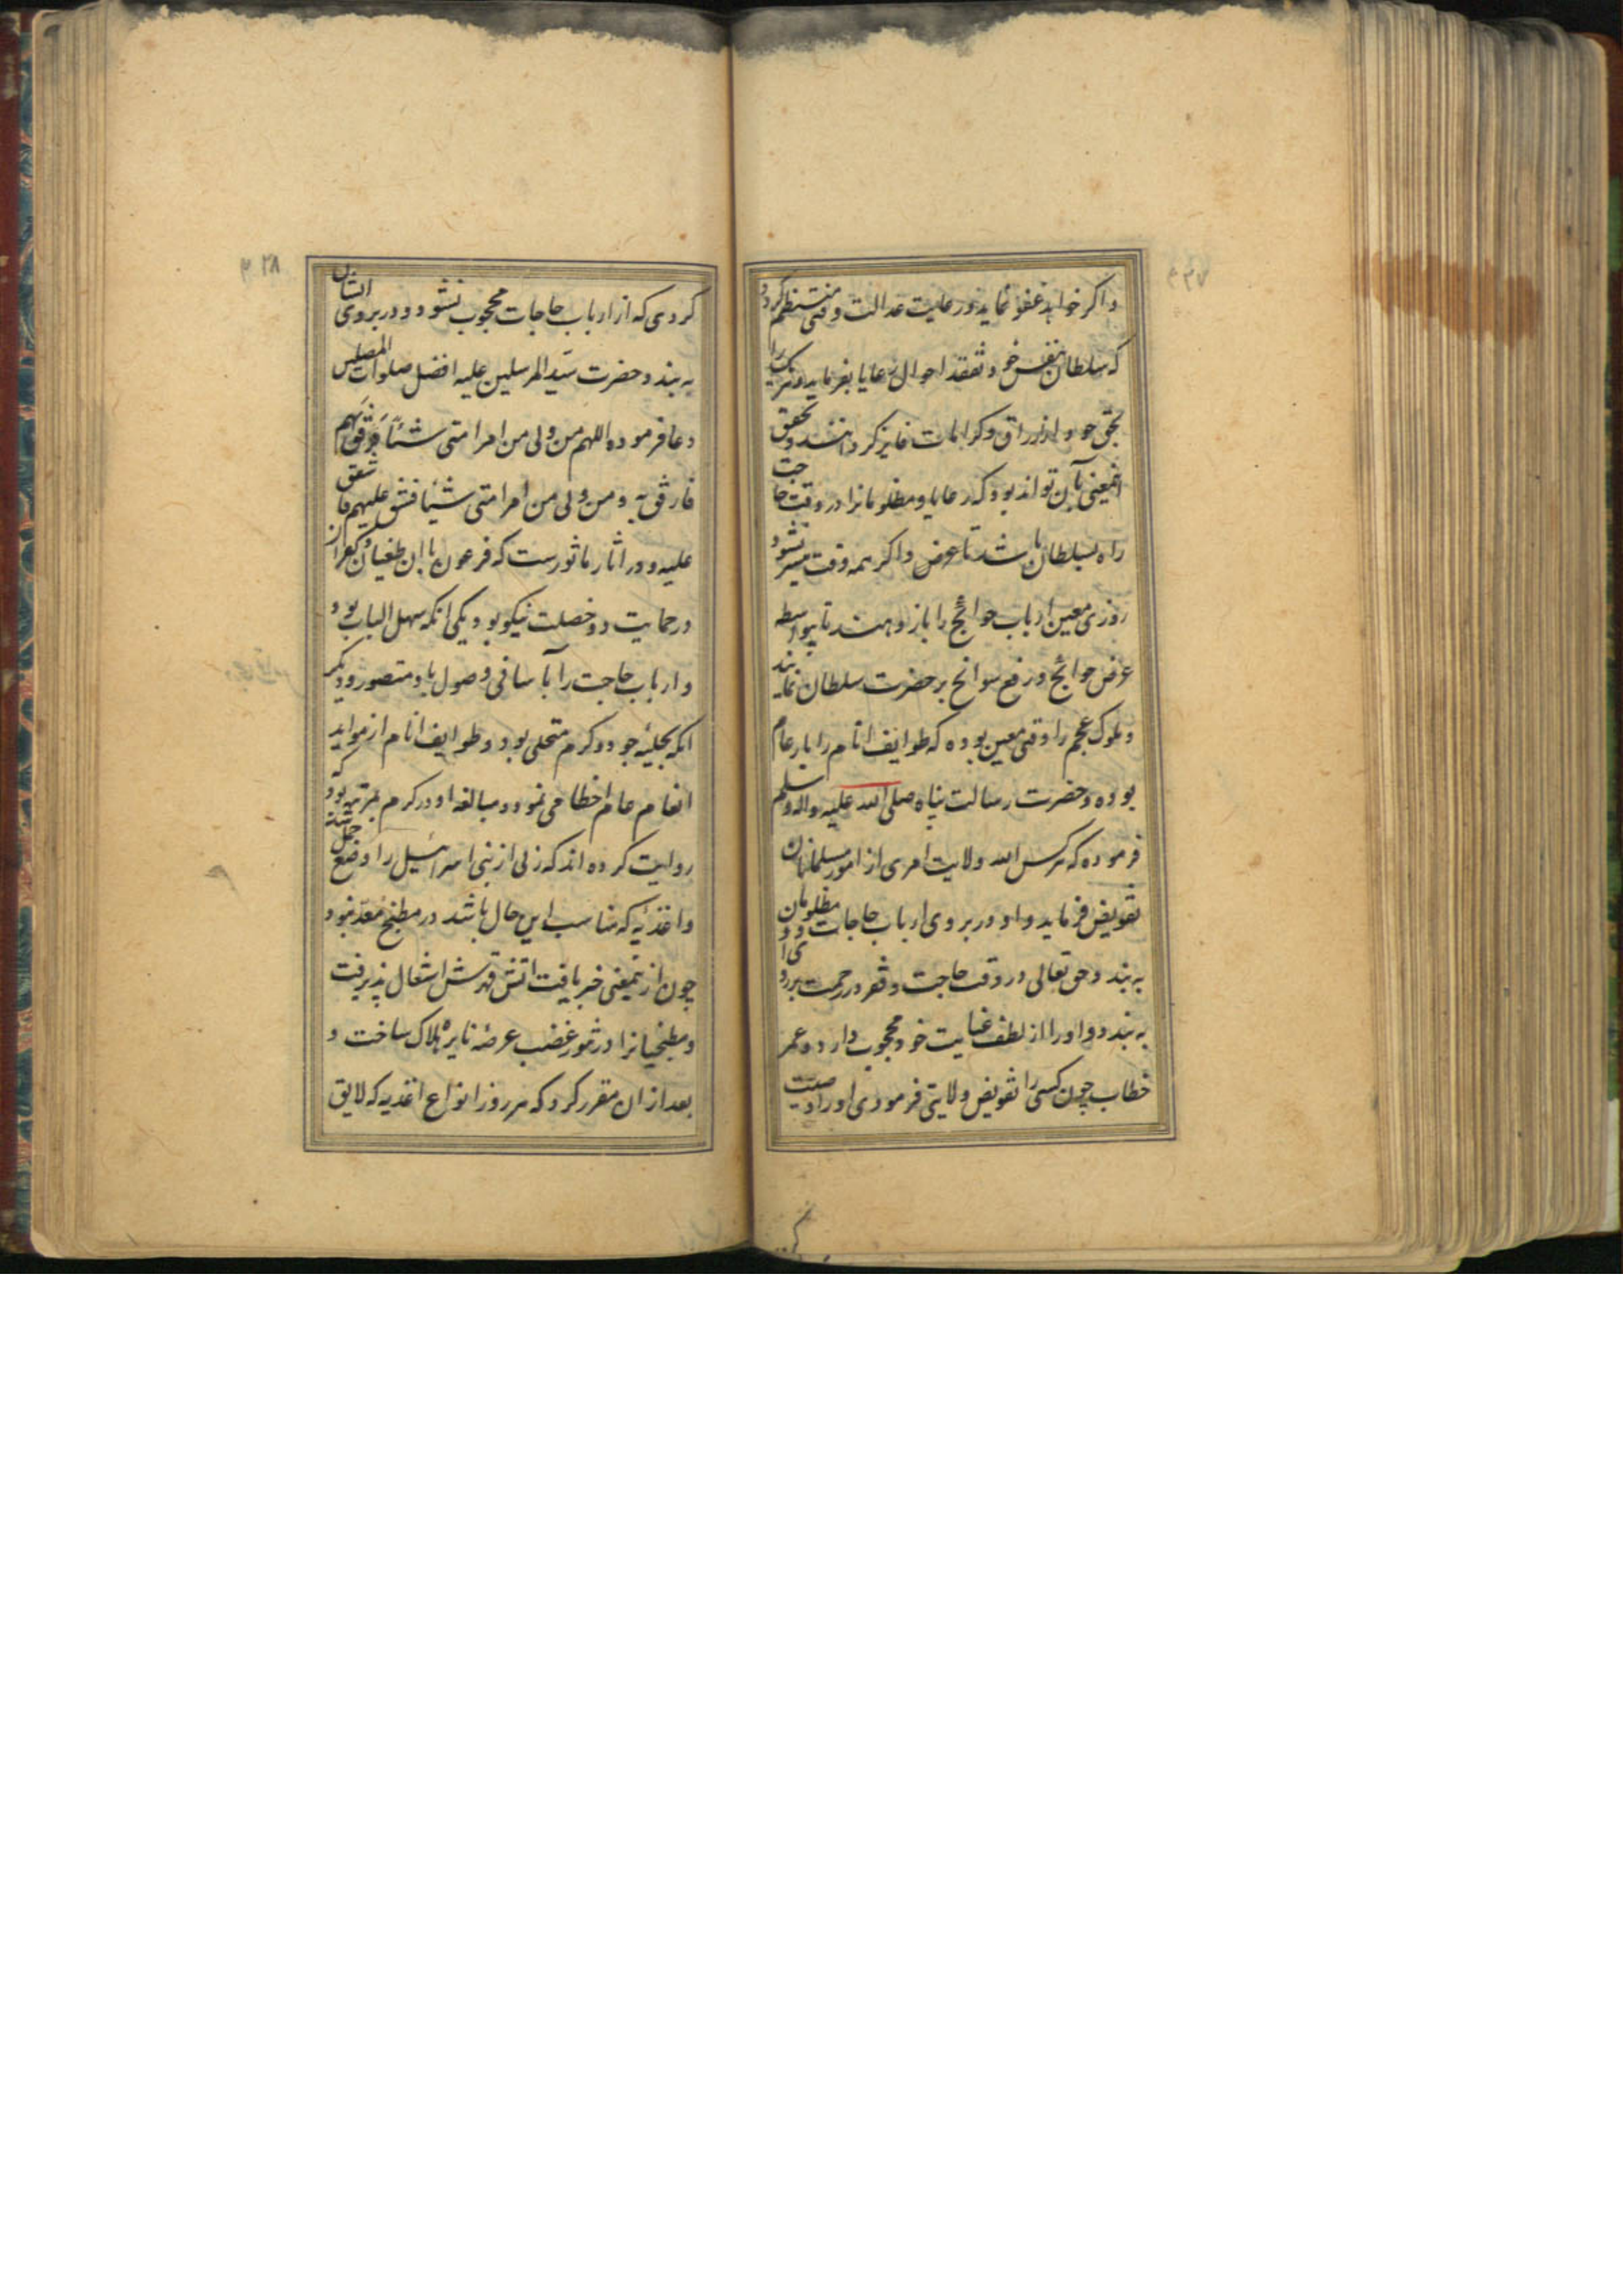 ۲۳۷
و اگر خواهد عفو نماید و رعایت عدالت وقتی منتظم گردد
که سلطان بنفس خود تفقد احوال رعایا بفرماید و هر یک را
بحق خود از ارزاق و کرامات فایز گردانند و تحقق
اینمعنی بآن تواند بود که رعایا و مظلومانرا در وقت حاجت
راه بسلطان باشد تا عرض و اگر همه وقت میسر نشود
روزی معین ارباب حوائج را بار دهند تا بیواسطه
عرض حوایج و رفع سوانح بر حضرت سلطان نمایند
و ملوک عجم را وقتی معین بوده که طوایف انام را بار عام
بوده و حضرت رسالت پناه صلی الله علیه واله وسلم
فرموده که هر کس الله ولایت امری از امور مسلمانان
تفویض فرماید و او در بروی ارباب حاجات و مظلومان
به بندد حق تعالی در وقت حاجت و فقر در رحمت بروی او
به بندد و او را از لطف عنایت خود محجوب دارد و عمر
خطاب چون کسی را تفویض ولایتی فرمودی او را وصیت
۲۳۸
کردی که از ارباب حاجات محجوب نشود و در بروی ایشان
به بندد و حضرت سید المرسلین علیه افضل صلوات المصلین
دعا فرموده اللهم من ولی من امر امتی شیئا فرفق بهم
فارفق به و من ولی من امر امتی شیئا فشق علیهم فاشقق
علیه و در اثار ماثورست که فرعون با ان طغیان و کفر از
در حمایت دو خصلت نیکو بود یکی انکه سهل الباب بود
و ارباب حاجت را بآسانی وصول باو متصور و دیگر
انکه بحلیه جود و کرم متحلی بود و طوایف انام از مواید
انعام عام احظا می نمود و مبالغه او در کرم بمرتبه بود که
روایت کرده اند که زنی از بنی اسرائیل را وضع حمل شد
و اغذیه که مناسب این حال باشد در مطبخ معد نبود
چون از ینمعنی خبر یافت اتش قهرش اشتعال پذیرفت
و مطبخیانرا در غضب عرضه نایره هلاک ساخت و
بعد از ان مقرر کرد که هر روز انواع اغذیه که لایق